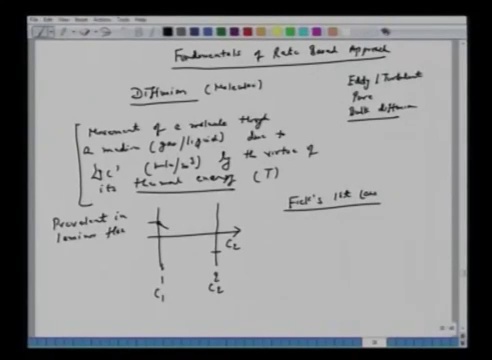 Fundamentals of Rate Based Approach
Diffusion (Molecular)
Eddy / Turbulent
Pore
Bulk diffusion
Movement of a molecule through
a medium (gas/liquid) due to
Δ'C' (mole/m³) by the virtue of
its thermal energy (T)
Fick's 1st Law
Prevalent in
laminar flow
C₂
1
2
C₁
C₂